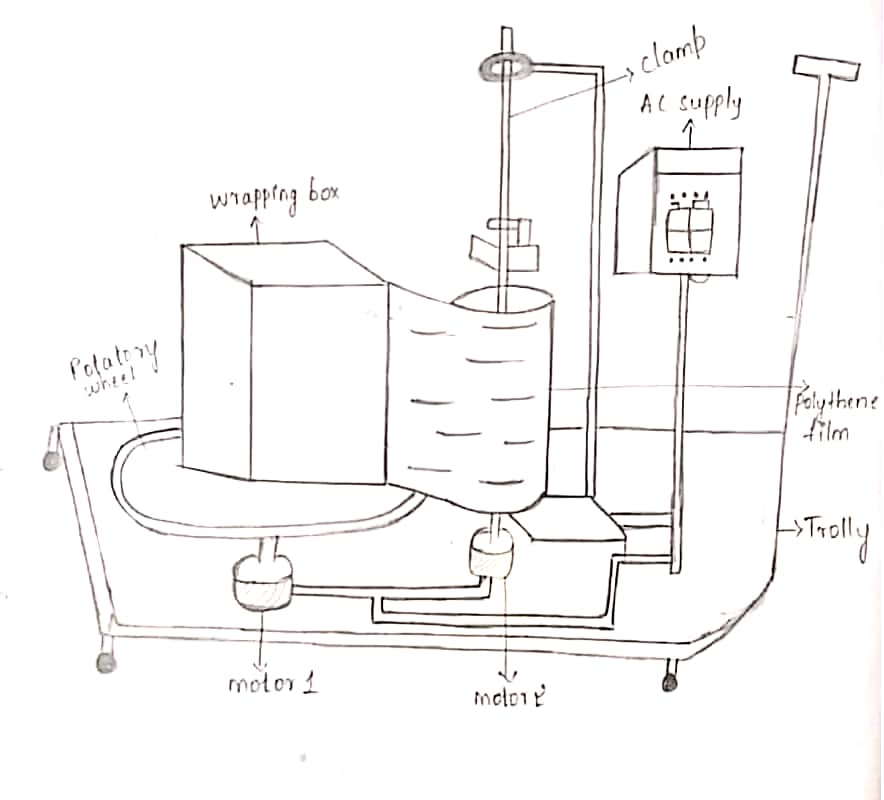 clamp
AC supply
wrapping box
Rotatory
wheel
Polythene
film
Trolly
motor 1
motor 2